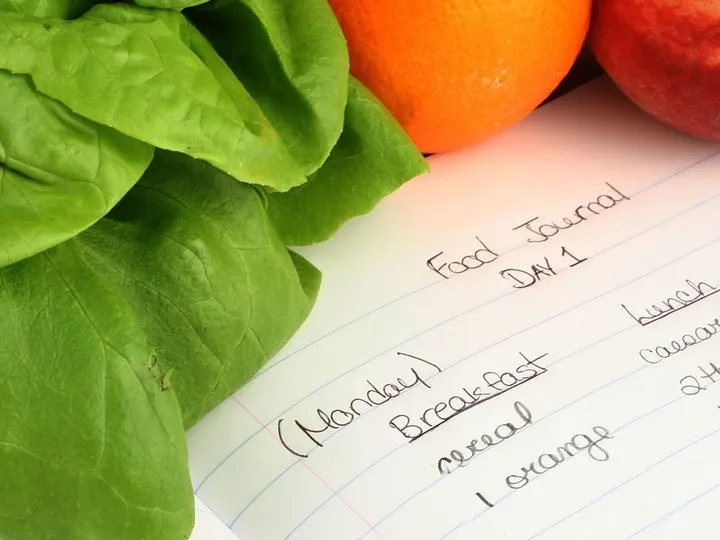 Food Journal
DAY 1
(Monday)
Breakfast
cereal
1 orange
Lunch